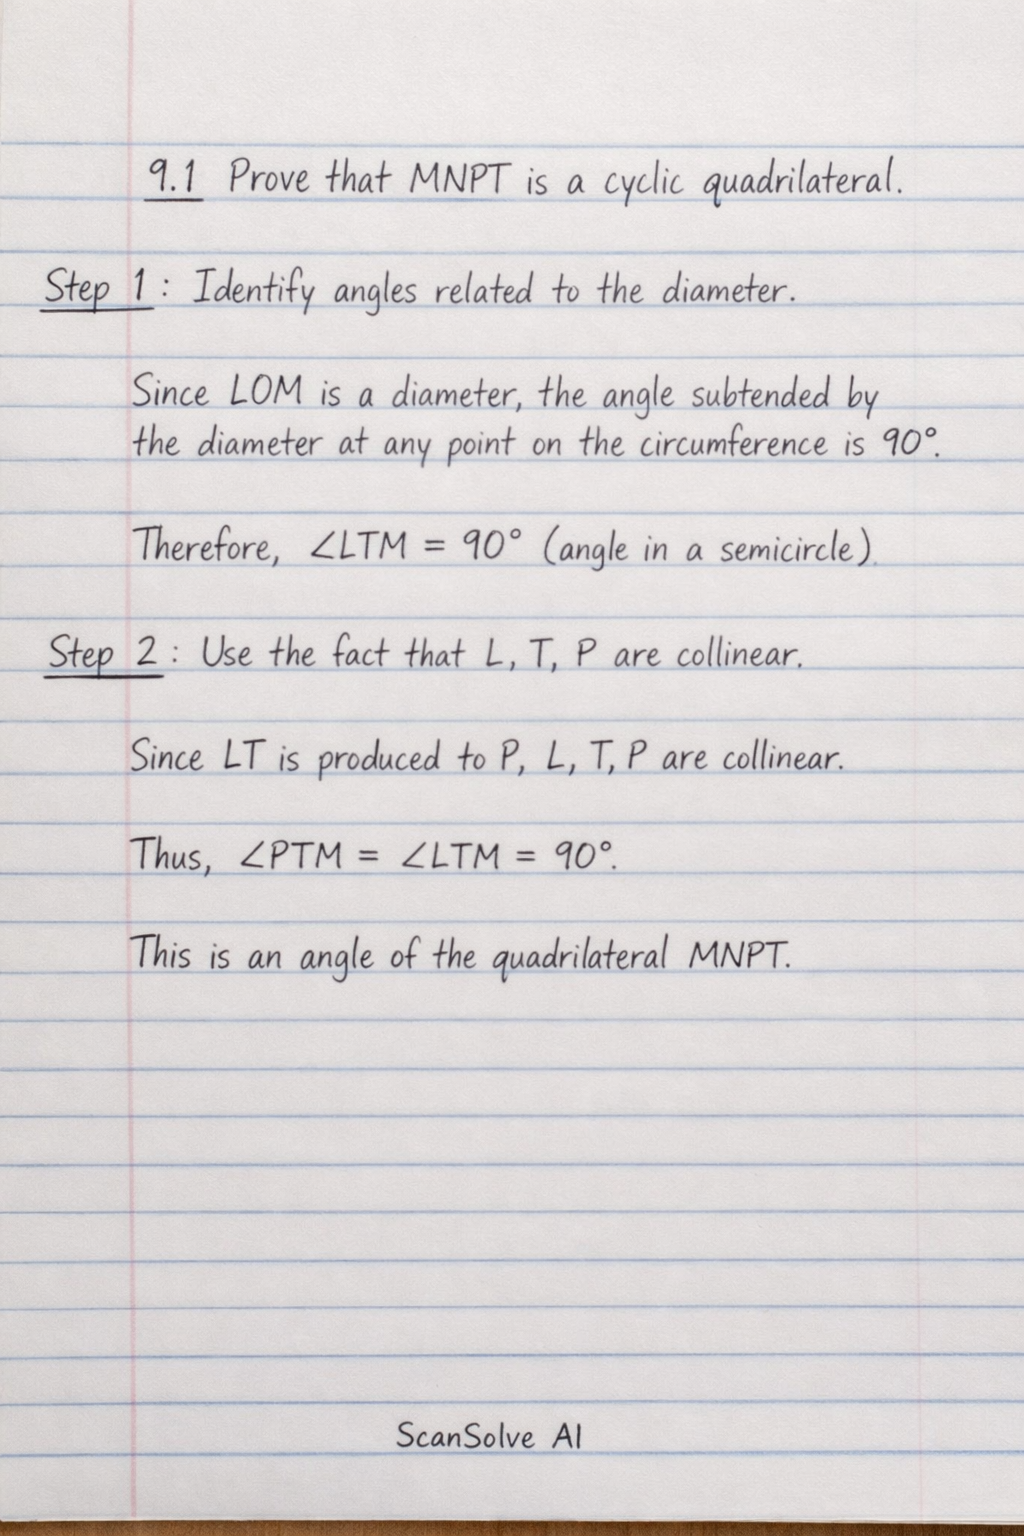 9.1 Prove that MNPT is a cyclic quadrilateral.
Step 1: Identify angles related to the diameter.
Since LOM is a diameter, the angle subtended by
the diameter at any point on the circumference is 90°.
Therefore, ∠LTM = 90° (angle in a semicircle).
Step 2: Use the fact that L, T, P are collinear.
Since LT is produced to P, L, T, P are collinear.
Thus, ∠PTM = ∠LTM = 90°.
This is an angle of the quadrilateral MNPT.
ScanSolve AI